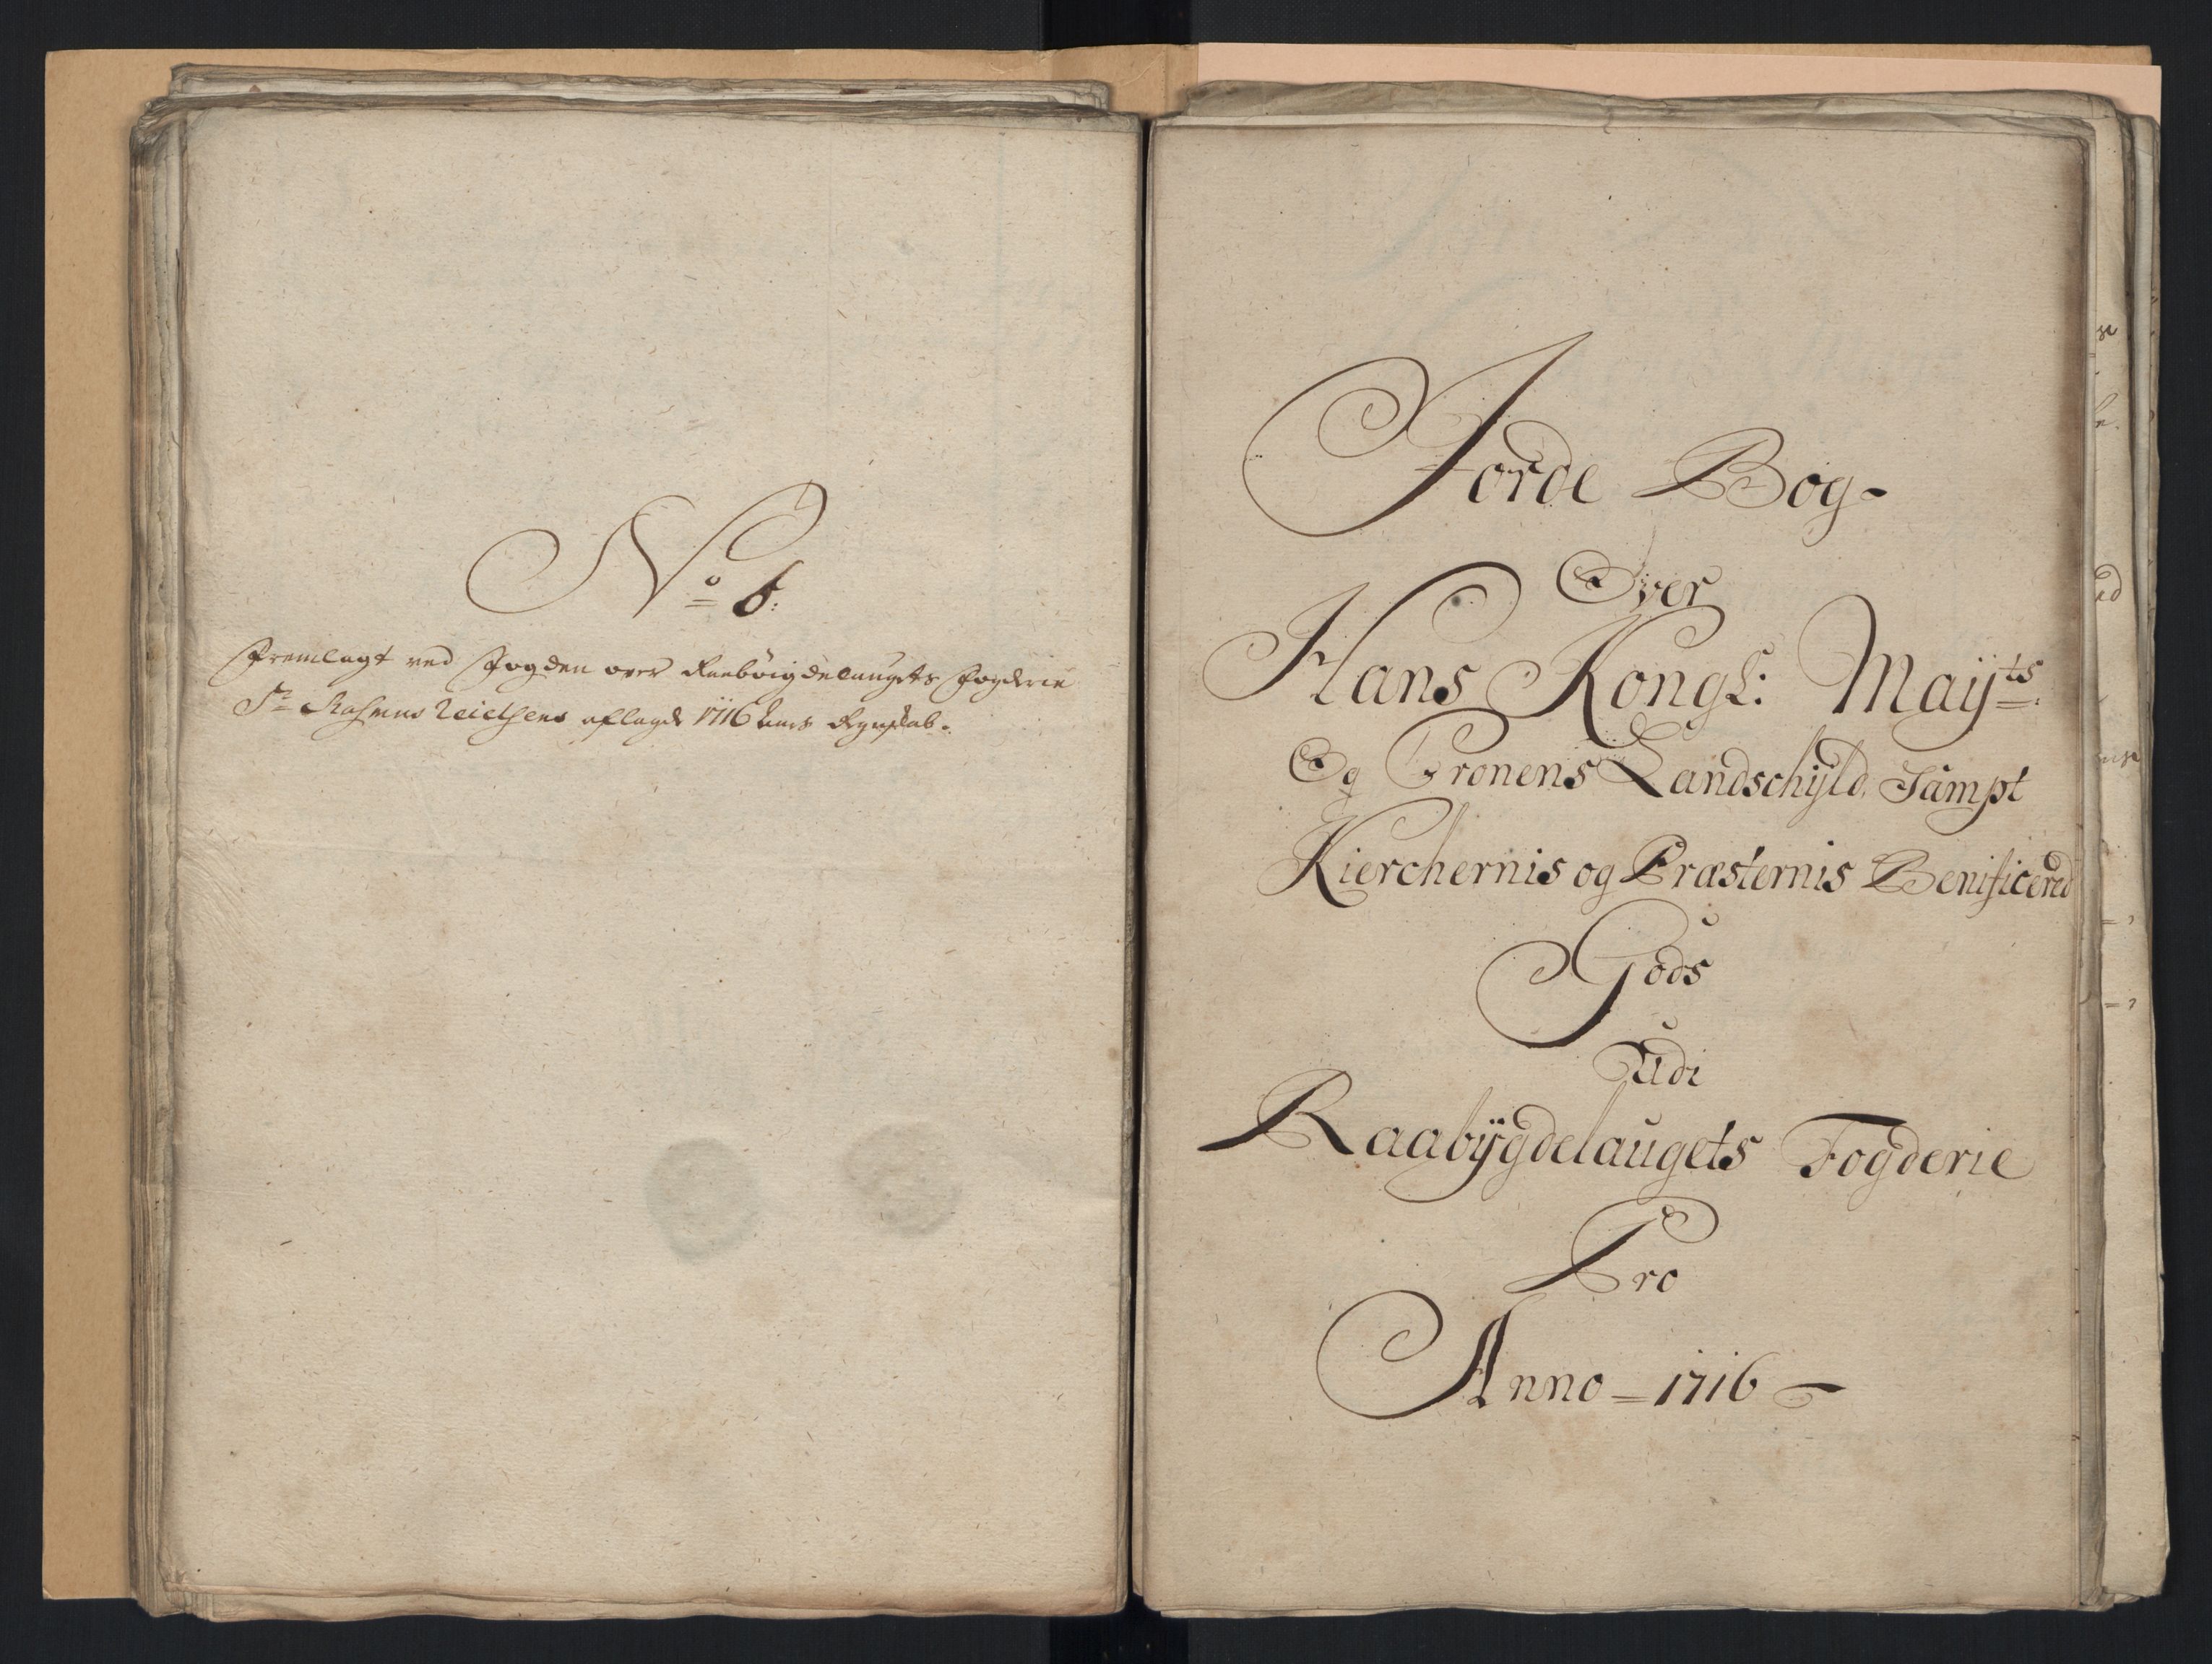 No 6:
Fremlagt ved Fogden over Raabøigdelaugets Fogderie
Sr Rasmus aflagde 1716 Aars Regnskab.
Jorde Bog
Over
Hans Kongl: Mayts
Og Cronens Landschyld, Sampt
Kierchernis og Præsternis Benificered
Gods
Udi
Raabÿgdelaugets Fogderie
Pro
Anno 1716